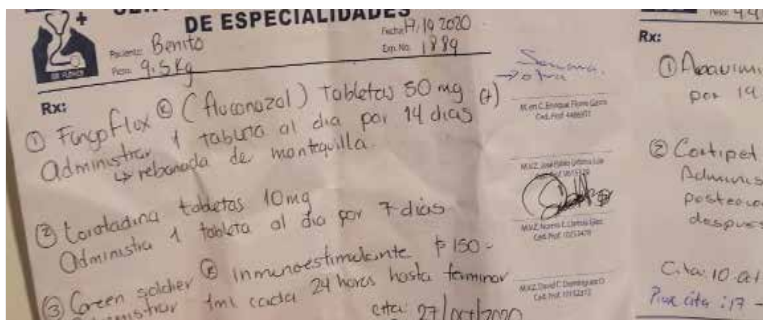 DE ESPECIALIDADES
Paciente: Benito
Fecha: 17.10.2020
Peso: 9.5 Kg
Exp. No. 1889
Rx:
① Fungoflux ® (fluconazol) Tabletas 50 mg (+)
Administrar 1 tableta al dia por 14 dias
↳ rebanada de mantequilla.
② Loratadina tabletas 10mg
Administra 1 tableta al dia por 7 dias.
③ Green soldier ® inmunoestimulante $150-
1ml cada 24 horas hasta terminar
cita: 27/oct/2020
Semana.
→ otra
M. en C. Enrique Flores
Ced. Prof.
M.V.Z.
M.V.Z. Norma E.
Ced. Prof.
M.V.Z. David C. Dominguez O.
Ced. Prof.
Rx:
①
por 14
② Cortipet
Adminis
después
Cita: 10
cita: 17 -